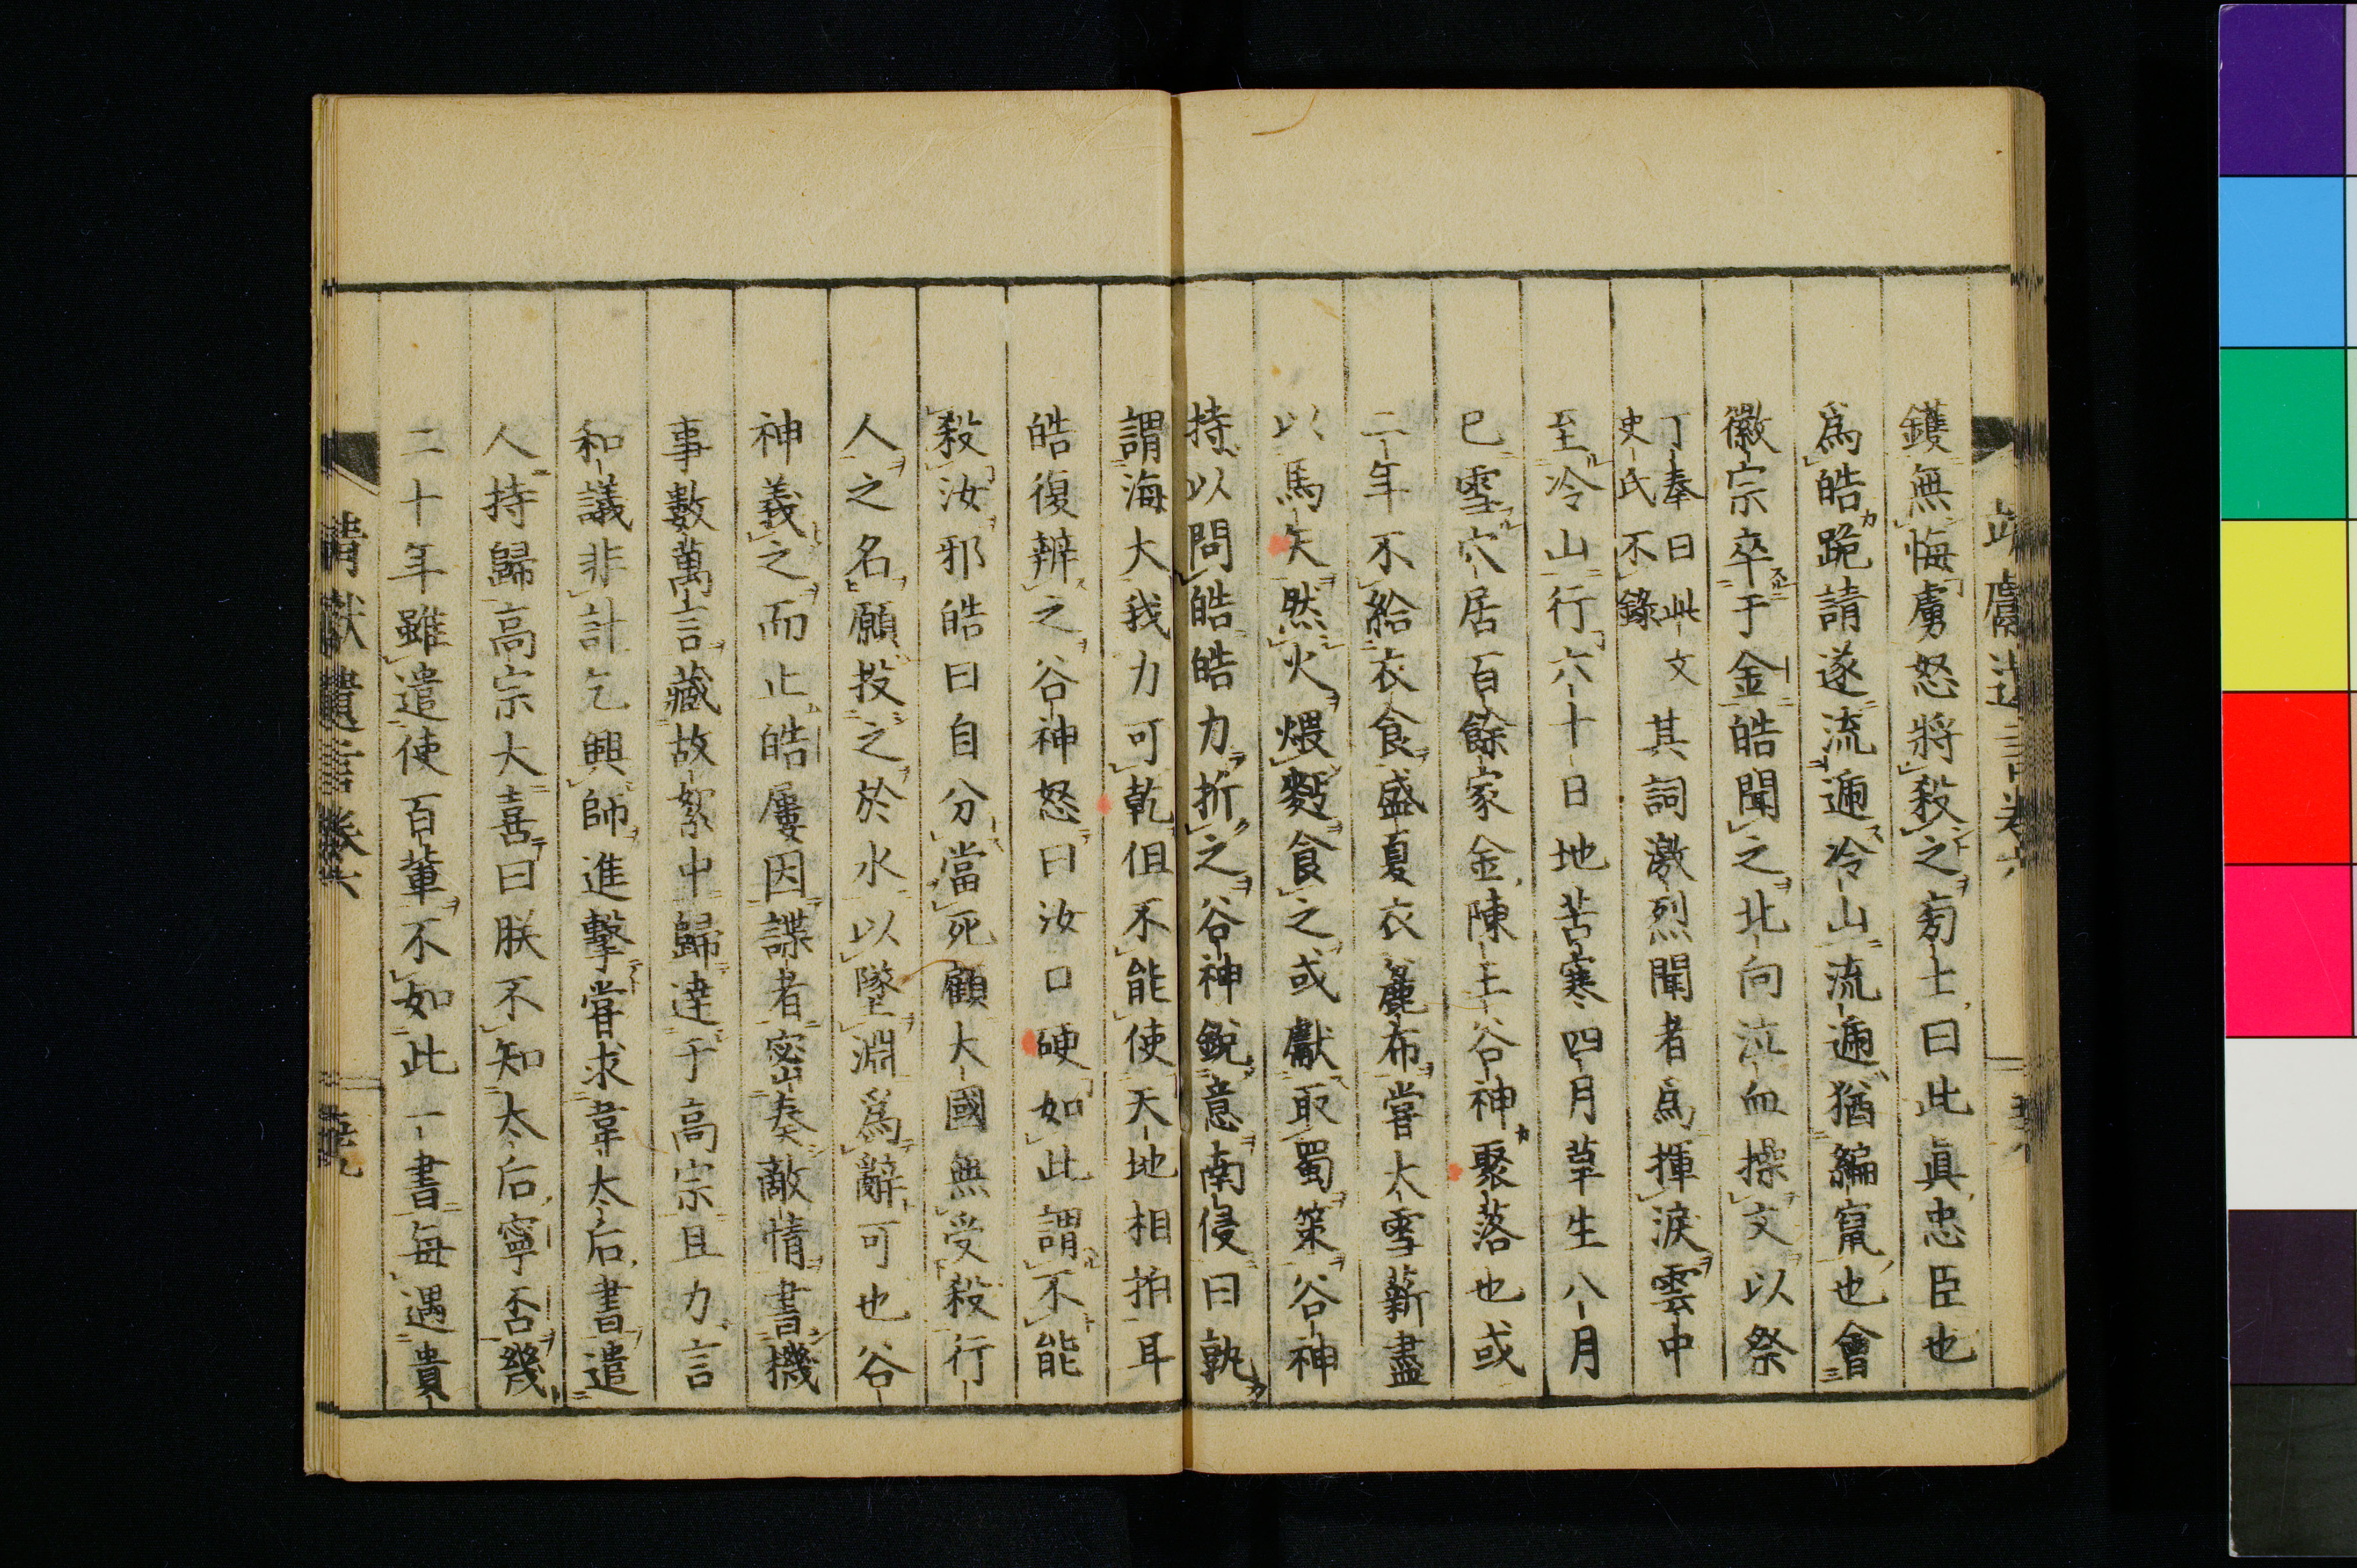 鑊無悔虜怒將殺之旁士曰此眞忠臣也
爲皓跪請遂流遞冷山流遞猶編竄也會
徽宗卒于金皓聞之北向泣血操文以祭
丁奉曰此文
史氏不錄
其詞激烈聞者爲揮淚雲中
至冷山行六十日地苦寒四月草生八月
已雪穴居百餘家金陳王谷神聚落也或
二年不給衣食盛夏衣麤布嘗大雪薪盡
以馬矢然火煨麪食之或獻取蜀策谷神
持以問皓皓力折之谷神銳意南侵曰孰
謂海大我力可乾但不能使天地相拍耳
皓復辨之谷神怒曰汝口硬如此謂不能
殺汝邪皓曰自分當死顧大國無受殺行
人之名願投之於水以墜淵爲辭可也谷
神義之而止皓屢因諜者密奏敵情書機
事數萬言藏故絮中歸達于高宗且力言
和議非計乞興師進擊嘗求韋太后書遣
人持歸高宗大喜曰朕不知太后寧否幾
二十年雖遣使百輩不如此一書每遇貴
靖獻遺言卷六